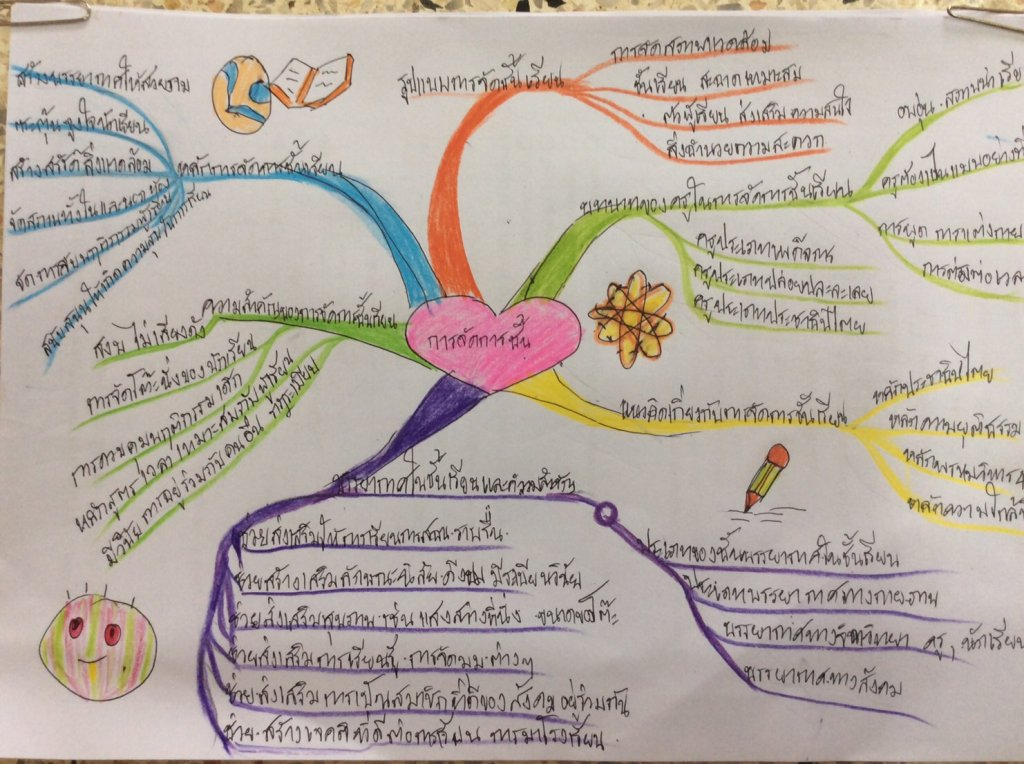 การจัดการชั้น
รูปแบบการจัดชั้นเรียน
การจัดสภาพแวดล้อม
ชั้นเรียน สะอาด เหมาะสม
ตัวผู้เรียน ส่งเสริม ความสนใจ
สิ่งอำนวยความสะดวก
บทบาทของครูในการจัดการชั้นเรียน
อบอุ่น
ครูต้องเป็นแบบอย่างที่
การพูด การแต่งกาย
การตรงต่อเวลา
ครูประเภทเผด็จการ
ครูประเภทปล่อยปละละเลย
ครูประเภทประชาธิปไตย
แนวคิดเกี่ยวกับการจัดการชั้นเรียน
หลักประชาธิปไตย
หลักความยุติธรรม
หลักพรหมวิหาร 4
หลักความใกล้
บรรยากาศในชั้นเรียนและความสำคัญ
ช่วยส่งเสริมให้การเรียนการสอน ราบรื่น
ช่วยสร้างเสริมลักษณะนิสัย ดีงาม มีระเบียบวินัย
ช่วยส่งเสริมสุขภาพ เช่น แสงสว่างที่นั่ง ขนาดของโต๊ะ
ช่วยส่งเสริมการเรียนรู้ การจัดมุม ต่างๆ
ช่วยส่งเสริม การเป็นสมาชิก ที่ดีของ สังคม อยู่ร่วมกัน
ช่วย สร้างเจตคติที่ดี ต่อการเรียน การมาโรงเรียน
ประเภทของชั้นบรรยากาศในชั้นเรียน
ประเภทบรรยากาศทางกายภาพ
บรรยากาศทางจิตวิทยา ครู, นักเรียน
บรรยากาศทางสังคม
ความสำคัญของการจัดการชั้นเรียน
สงบ ไม่เสียงดัง
การจัดโต๊ะนั่งของนักเรียน
การควบคุมพฤติกรรมเด็ก
หลักสูตร เวลา เหมาะสมกับผู้เรียน
มีวินัย การอยู่ร่วมกับคนอื่น ที่ถูกระเบียบ
หลักการจัดการชั้นเรียน
สร้างบรรยากาศให้สวยงาม
กระตุ้นจูงใจนักเรียน
สร้างสรรค์ สิ่งแวดล้อม
จัดสถานทั้งในและนอกห้อง
จัดการกับพฤติกรรมผู้เรียน
สนับสนุนให้เกิดความสุขในการเรียน